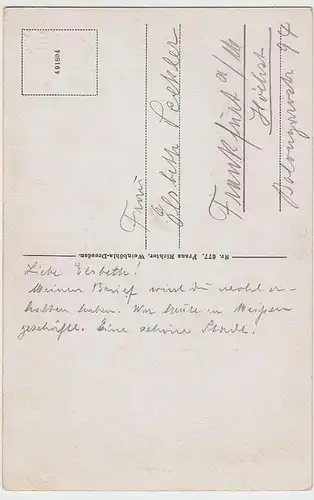 491804
Frau
Elsbeth
Frankfurt a/M
Höchst
Bolongarostr 94
Nr. 677. Franz Richter, Weinböhla-Dresden.
Liebe Elsbeth!
Meinen Brief wirst du wohl er-
halten haben. War heute in Meißen
geschäftl. Eine schöne Stadt.